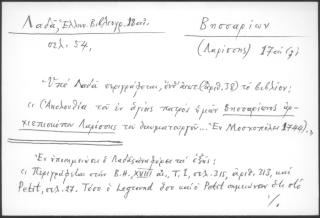 Λαδᾶ, Ἑλλην. Βιβλιογρ. 18 αἰ.
σελ. 54,
Βησσαρίων
(Λαρίσσης) 17αἰ (;)
Ὑπὸ Λαδᾶ περιγράφεται, (ἀριθ. 38) τὸ βιβλίον;
(Ἀκολουθία τοῦ ἐν ἁγίοις πατρὸς ἡμῶν Βησσαρίωνος ἀρ-
χιεπισκόπου Λαρίσσης τοῦ θαυματουργοῦ... Ἐν Μοσχοπόλει 1744).
Ἐν ὑποσημειώσει ὁ Λαδᾶς ἀναφέρει τὰ ἑξῆς:
Περιγράφεται στὴν B.H. XVIII αἰ., T, I, σελ. 315, ἀριθ. 313, καὶ
Petit, σελ. 27. Τόσο ὁ Legrand ὅσο καὶ ὁ Petit σημειώνουν ὅτι στὸ
./.